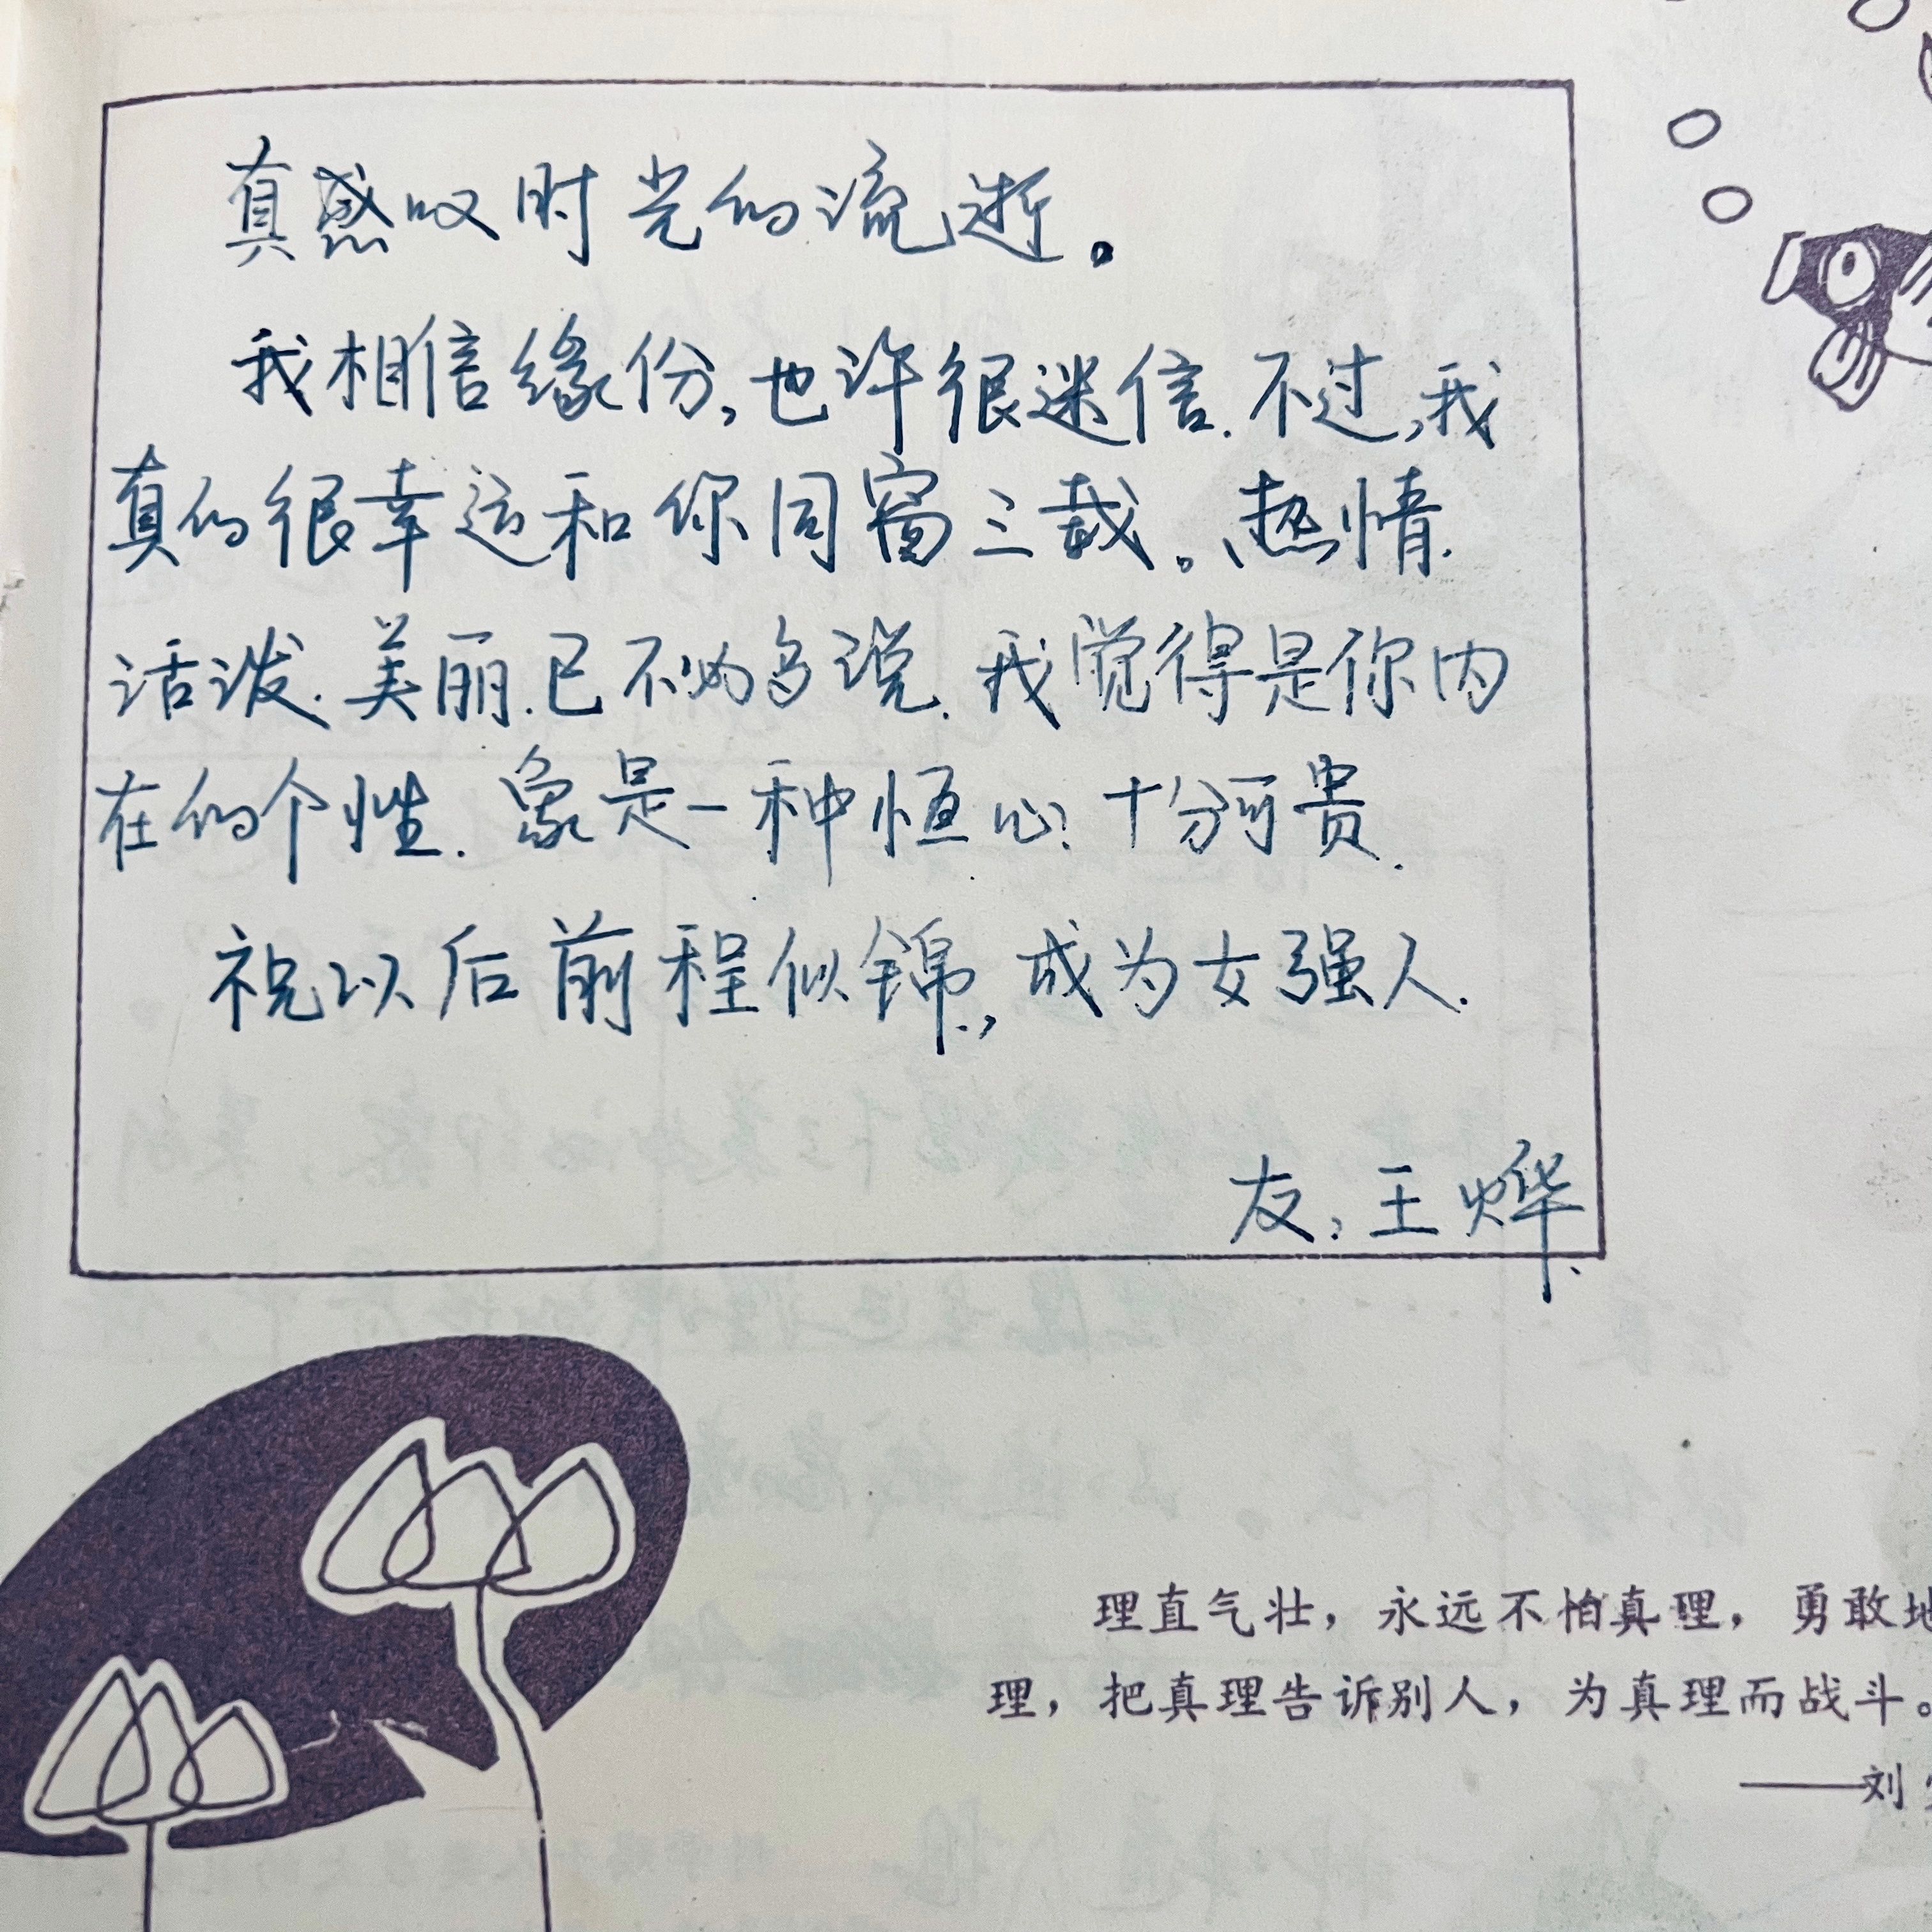 真感叹时光的流逝。
我相信缘份,也许很迷信.不过,我
真的很幸运和你同窗三载。热情.
活泼.美丽.已不必多说.我觉得是你内
在的个性.象是一种恒心?十分可贵.
祝以后前程似锦,成为女强人.
友:王烨
理直气壮，永远不怕真理，勇敢地
理，把真理告诉别人，为真理而战斗。
——刘